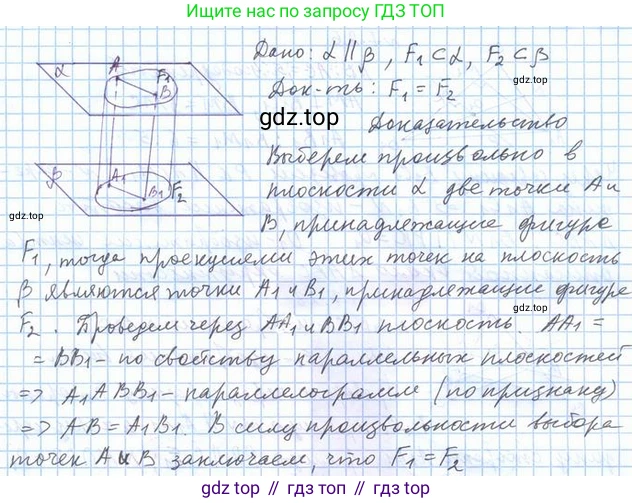 Ищите нас по запросу ГДЗ ТОП
Дано: α ∥ β, F₁ ⊂ α, F₂ ⊂ β
Док-ть: F₁ = F₂
gdz.top
Доказательство
Выберем произвольно в
плоскости α две точки A и
B, принадлежащие фигуре
F₁, тогда проекциями этих точек на плоскость
β являются точки A₁ и B₁, принадлежащие фигуре
F₂. Проведем через AA₁ и BB₁ плоскость. AA₁ =
= BB₁ - по свойству параллельных плоскостей
=> A₁ABB₁ - параллелограмм (по признаку)
=> AB = A₁B₁. В силу произвольности выбора
точек A и B заключаем, что F₁ = F₂
α
A
F₁
B
β
A₁
B₁
F₂
gdz.top
gdz.top
gdz.top
gdz.top // gdz.top // gdz.top